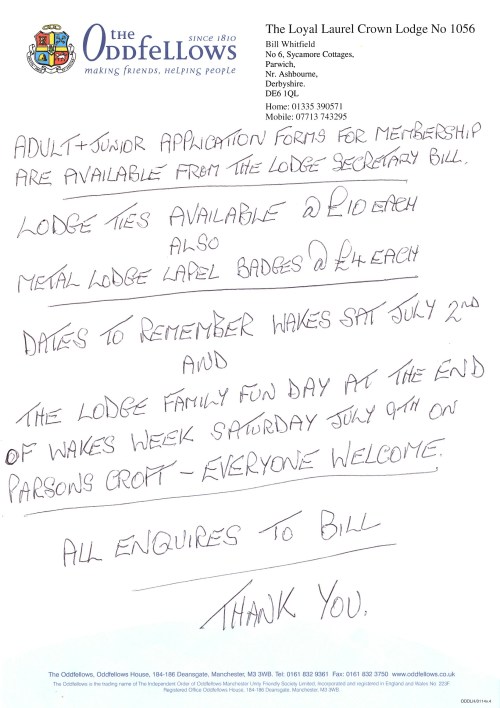 THE
ODDFELLOWS
SINCE 1810
MAKING FRIENDS, HELPING PEOPLE
The Loyal Laurel Crown Lodge No 1056
Bill Whitfield
No 6, Sycamore Cottages,
Parwich,
Nr. Ashbourne,
Derbyshire.
DE6 1QL
Home: 01335 390571
Mobile: 07713 743295
ADULT + JUNIOR APPLICATION FORMS FOR MEMBERSHIP
ARE AVAILABLE FROM THE LODGE SECRETARY BILL.
LODGE TIES AVAILABLE @ £10 EACH
ALSO
METAL LODGE LAPEL BADGES @ £4 EACH
DATES TO REMEMBER WAKES SAT JULY 2ND
AND
THE LODGE FAMILY FUN DAY AT THE END
OF WAKES WEEK SATURDAY JULY 9TH ON
PARSONS CROFT - EVERYONE WELCOME.
ALL ENQUIRES TO BILL
THANK YOU.
The Oddfellows, Oddfellows House, 184-186 Deansgate, Manchester, M3 3WB. Tel: 0161 832 9361 Fax: 0161 832 3750 www.oddfellows.co.uk
The Oddfellows is the trading name of The Independent Order of Oddfellows Manchester Unity Friendly Society Limited, Incorporated and registered in England and Wales No. 223F.
Registered Office Oddfellows House, 184-186 Deansgate, Manchester, M3 3WB.